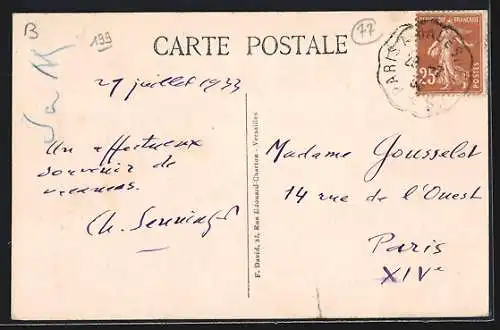 B
199
77
CARTE POSTALE
REPUBLIQUE FRANÇAISE
25
POSTES
PARIS A
27 juillet 1933
Un affectueux
souvenir de
vacances.
Ch.
F. David, 33, Rue Edouard-Charton - Versailles
Madame Gousselot
14 rue de l'Ouest
Paris
XIVe